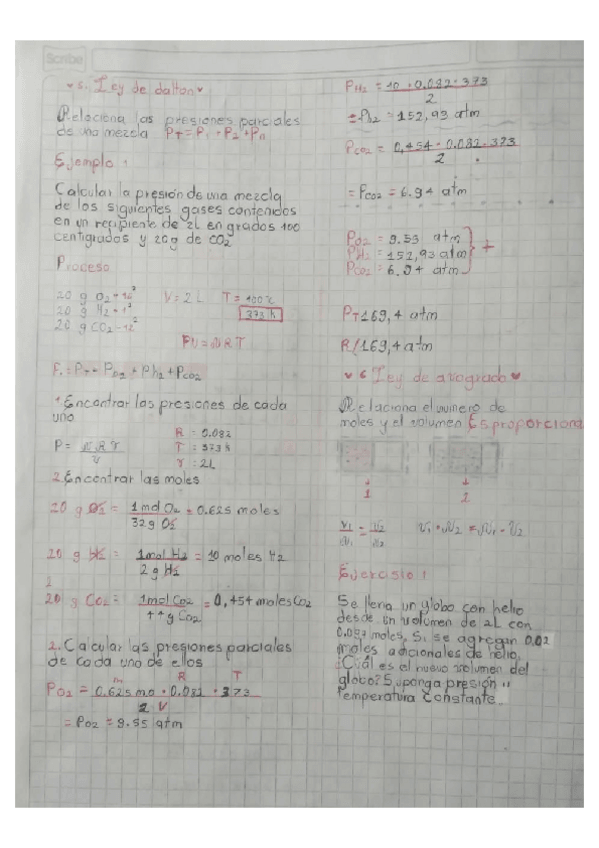 Scribe
♥ 5. Ley de dalton ♥
Relaciona las presiones parciales
de una mezcla PT = P1 + P2 + Pn
Ejemplo 1
Calcular la presión de una mezcla
de los siguientes gases contenidos
en un recipiente de 2L en grados 100
centigrados y 20g de CO2
Proceso
20 g O2
20 g H2
20 g CO2
V = 2 L T = 100 °C
373 k
PV = N R T
F. = PT + PO2 + Ph2 + PCO2
1 Encontrar las presiones de cada
uno
P = N.R.T / V
R = 0.082
T = 373 k
V = 2L
2. Encontrar las moles
20 g O2 = 1 mol O2 / 32 g O2 = 0.625 moles
20 g H2 = 1 mol H2 / 2 g H2 = 10 moles H2
20 g CO2 = 1 mol CO2 / 44 g CO2 = 0,454 moles CO2
2. Calcular las presiones parciales
de cada uno de ellos
m R T
PO2 = 0.625 mo · 0.082 · 373 / 2 V
= PO2 = 9.55 atm
PH2 = 10 · 0.082 · 373 / 2
= Ph2 = 152,93 atm
PCO2 = 0,454 · 0.082 · 373 / 2
= PCO2 = 6.94 atm
PO2 = 9.55 atm
PH2 = 152,93 atm
PCO2 = 6.94 atm
+
PT 169,4 atm
R/ 169,4 atm
♥ 6 Ley de avogrado ♥
Relaciona el numero de
moles y el volumen Es proporciona
1 2
V1 / N1 = V2 / N2 V1 · N2 = N1 · V2
Ejercisio 1
Se llena un globo con helio
desde un volumen de 2L con
0.082 moles. Si se agregan 0.02
moles adicionales de helio.
¿Cuál es el nuevo volumen del
globo? Suponga presión y
temperatura constante